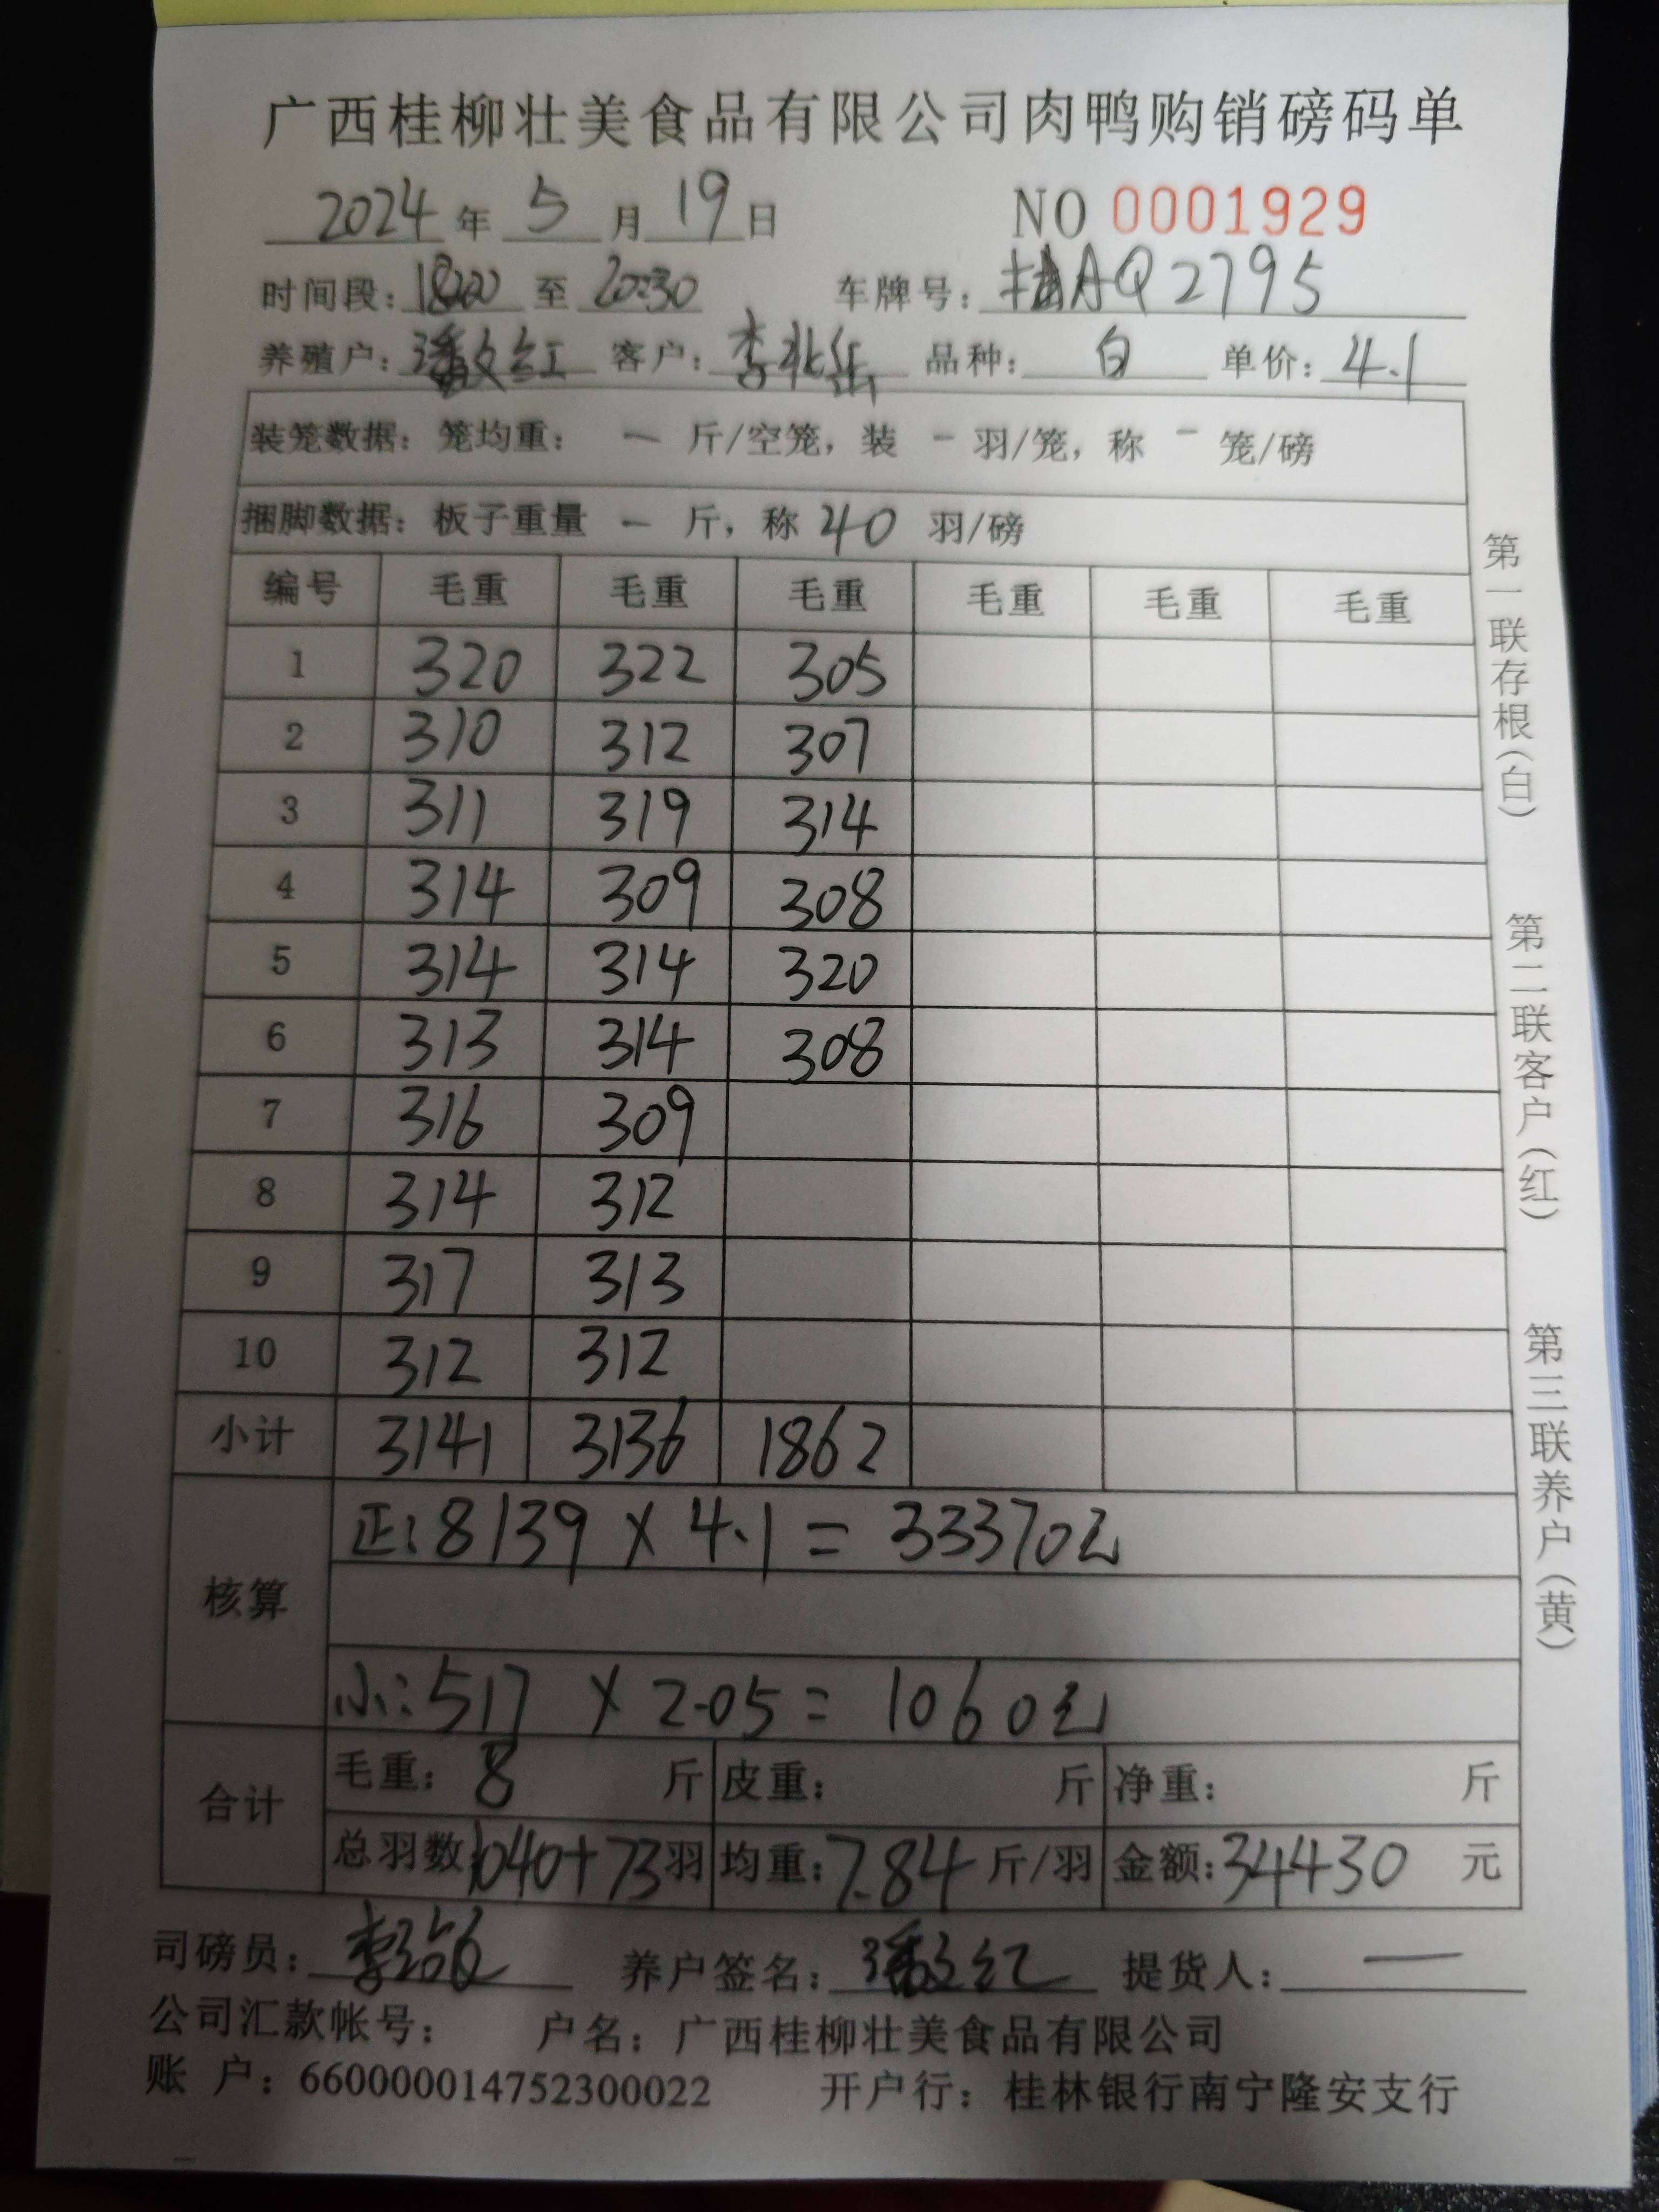 广西桂柳壮美食品有限公司肉鸭购销磅码单
2024年 5 月 19 日 NO 0001929
时间段: 至 20:30 车牌号: 桂AQ2795
养殖户: 潘文红 客户: 李 品种: 白 单价: 4.1
装笼数据: 笼均重: — 斤/空笼, 装 - 羽/笼, 称 - 笼/磅
捆脚数据: 板子重量 — 斤, 称 40 羽/磅
编号 毛重 毛重 毛重 毛重 毛重 毛重
1 320 322 305
2 310 312 307
3 311 319 314
4 314 309 308
5 314 314 320
6 313 314 308
7 316 309
8 314 312
9 317 313
10 312 312
小计 3141 3136 1862
正: 8139 × 4.1 = 33370元
核算
小: 517 × 2.05 = 1060元
合计
毛重: 8 斤 皮重: 斤 净重: 斤
总羽数: 1040+73羽 均重: 7.84 斤/羽 金额: 34430 元
司磅员: 李 养户签名: 潘文红 提货人: —
公司汇款帐号: 户名: 广西桂柳壮美食品有限公司
账 户: 660000014752300022 开户行: 桂林银行南宁隆安支行
第一联存根(白) 第二联客户(红) 第三联养户(黄)